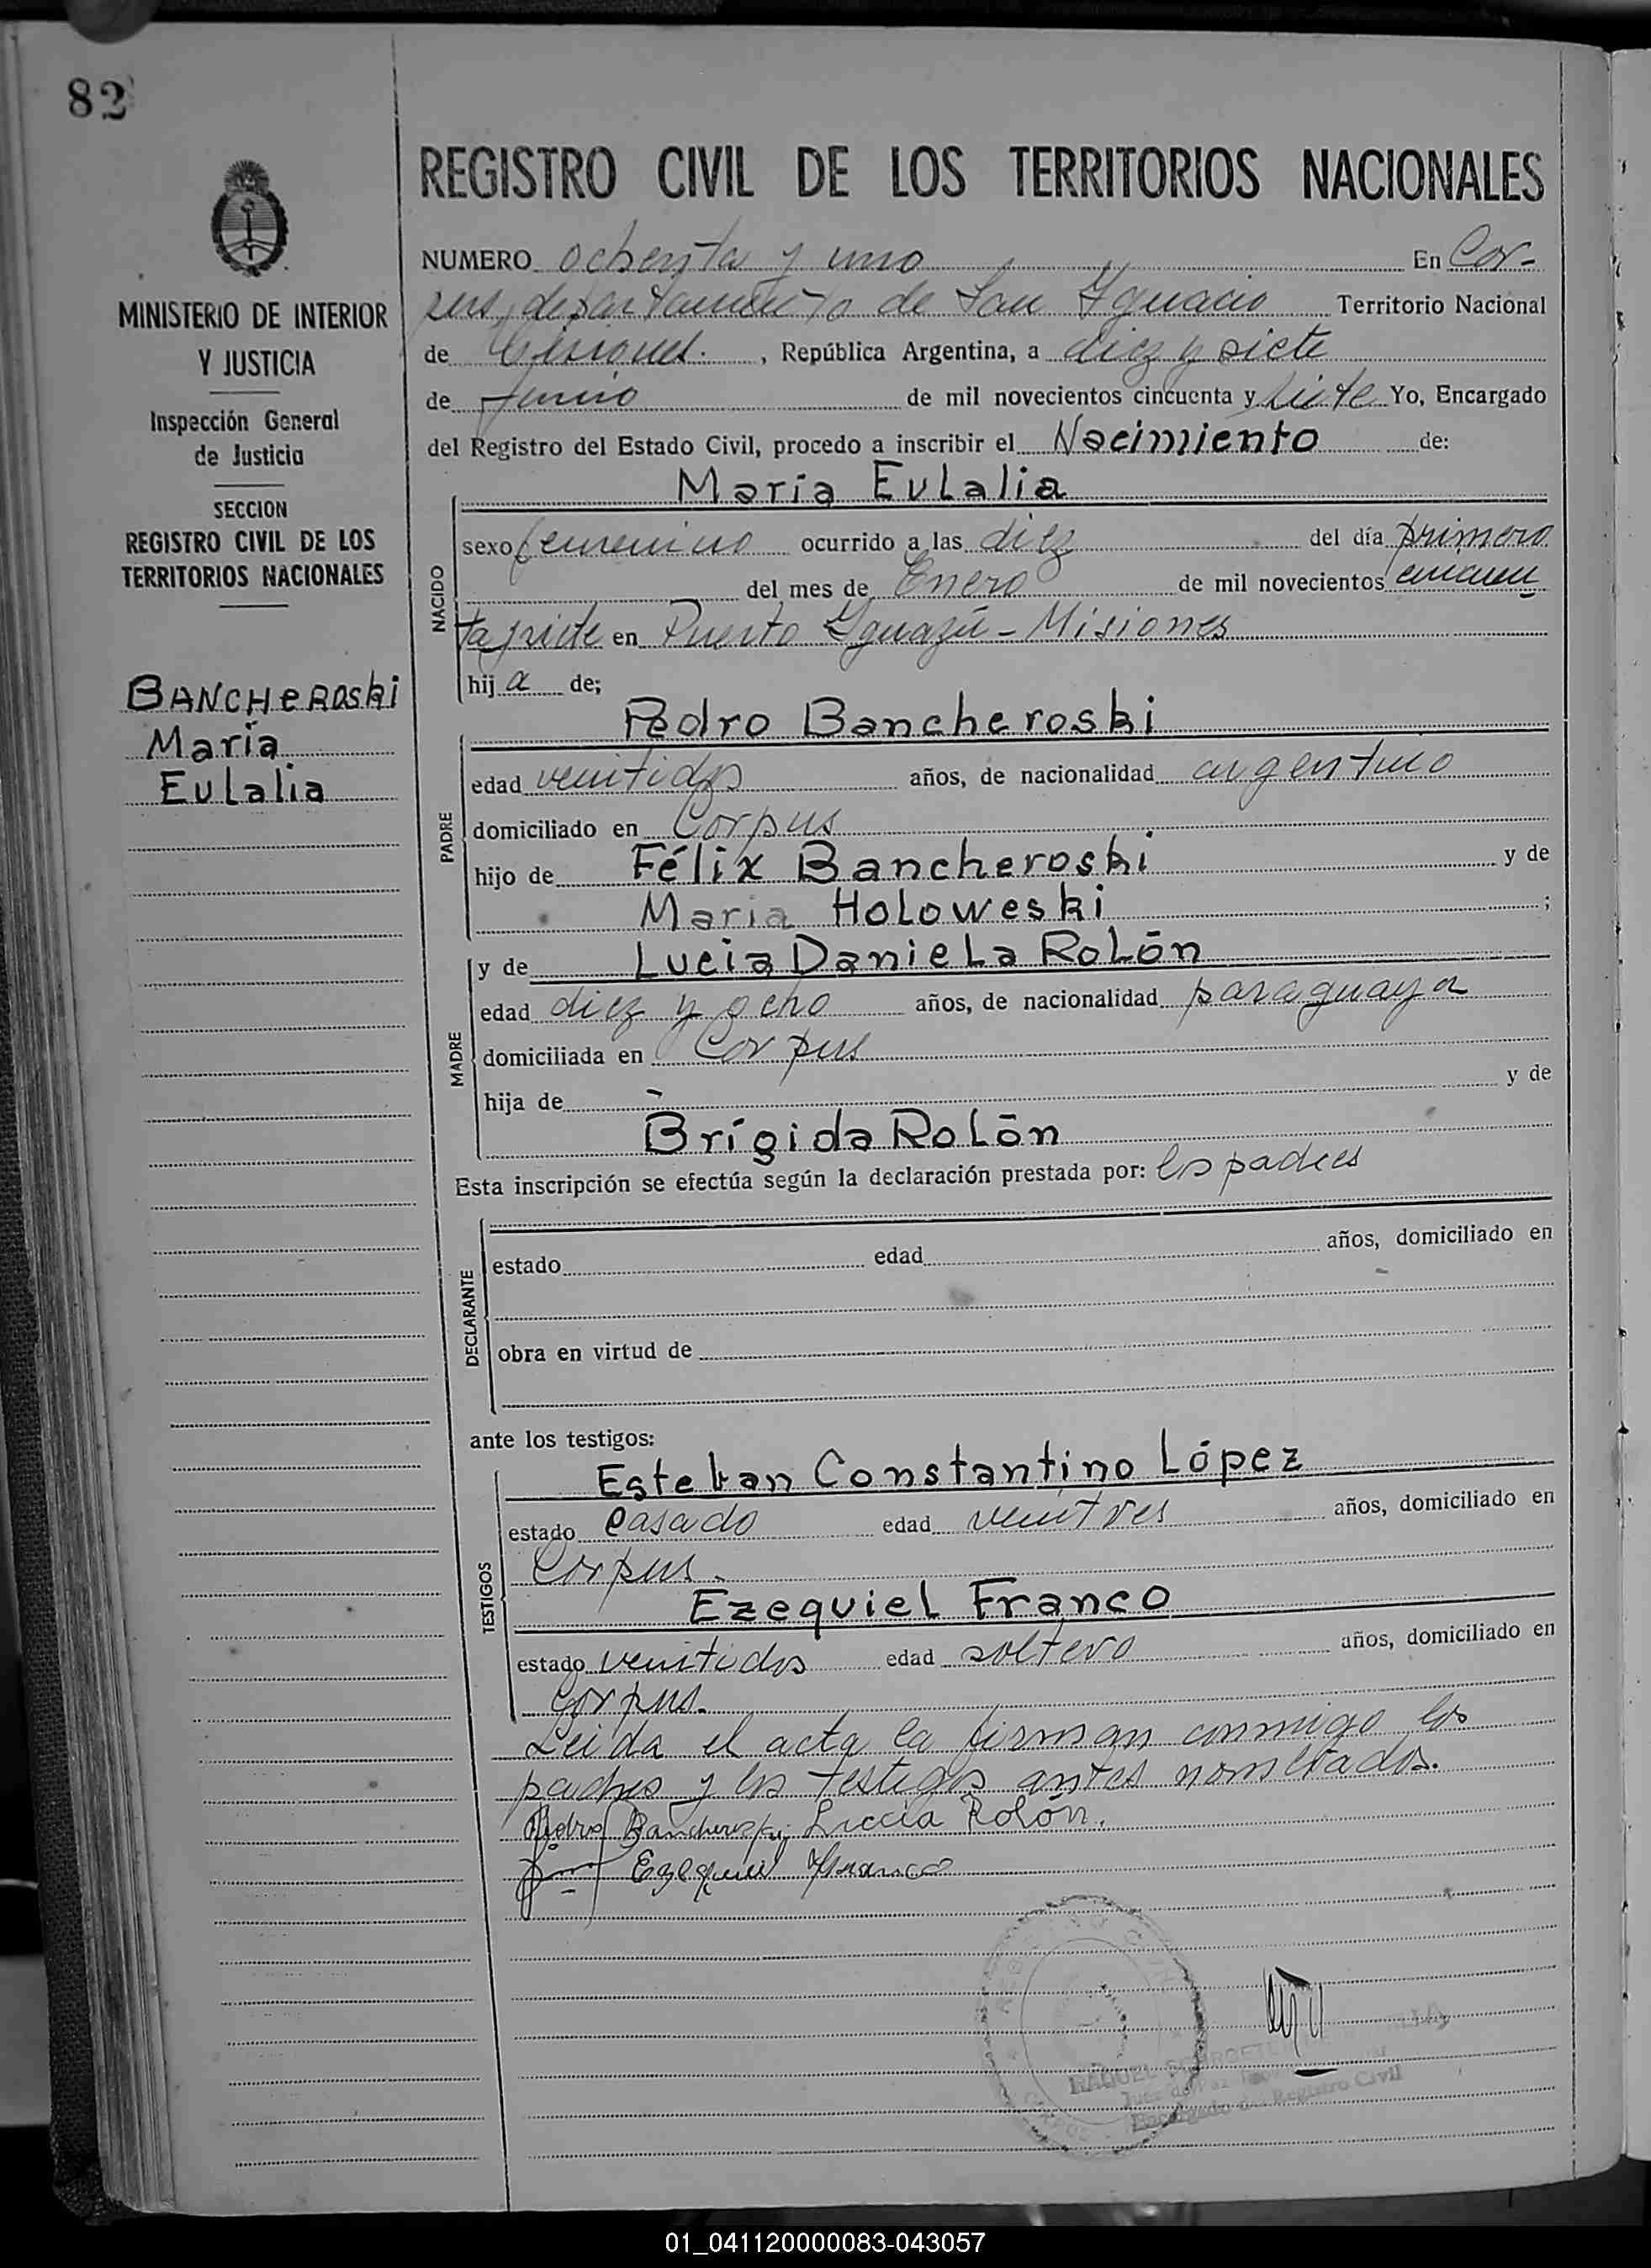 82
REGISTRO CIVIL DE LOS TERRITORIOS NACIONALES
MINISTERIO DE INTERIOR
Y JUSTICIA
Inspección General
de Justicia
SECCION
REGISTRO CIVIL DE LOS
TERRITORIOS NACIONALES
BANCHEROSKI
María
Eulalia
NUMERO ochenta y uno En Cor-
pus, departamento de San Ignacio Territorio Nacional
de Misiones. , República Argentina, a diez y siete
de junio de mil novecientos cincuenta y siete Yo, Encargado
del Registro del Estado Civil, procedo a inscribir el Nacimiento de:
María Eulalia
NACIDO
sexo femenino ocurrido a las diez del día primero
del mes de Enero de mil novecientos cincuen
ta y siete en Puerto Iguazú - Misiones
hij a de;
Pedro Bancheroski
PADRE
edad veintidos años, de nacionalidad argentino
domiciliado en Corpus
hijo de Félix Bancheroski y de
Maria Holoweski ;
y de Lucia Daniela Rolón
MADRE
edad diez y ocho años, de nacionalidad paraguaya
domiciliada en Corpus
hija de - y de
Brígida Rolón
Esta inscripción se efectúa según la declaración prestada por: los padres
DECLARANTE
estado edad años, domiciliado en
obra en virtud de
ante los testigos:
Esteban Constantino López
TESTIGOS
estado casado edad veintres años, domiciliado en
Corpus.
Ezequiel Franco
estado veintidos edad soltero años, domiciliado en
Corpus.
Leida el acta la firman conmigo los
padres y los testigos antes nombrados.
Pedro Bancheroski Luccia Rolón.
Ezequiel Franco
RAQUEL
Encargado del Registro Civil
01_041120000083-043057